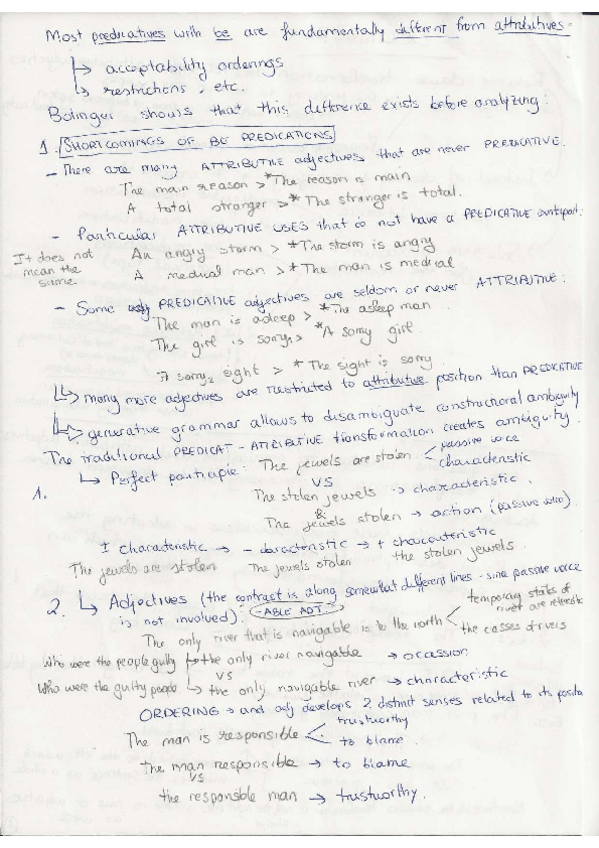 Most predicatives with be are fundamentally different from attributives =
↳ acceptability orderings
↳ restrictions, etc.
Bolinger shows that this difference exists before analyzing:
1. SHORTCOMINGS OF BE PREDICATIONS
- There are many ATTRIBUTIVE adjectives that are never PREDICATIVE.
The main reason > *The reason is main
A total stranger > * The stranger is total.
- Particular ATTRIBUTIVE USES that do not have a PREDICATIVE counterpart:
It does not mean the same
An angry storm > *The storm is angry
A medical man > * The man is medical
- Some PREDICATIVE adjectives are seldom or never ATTRIBUTIVE:
The man is asleep > *The asleep man.
The girl is sorry > *A sorry girl.
A sorry sight > * The sight is sorry.
↳ many more adjectives are restricted to attributive position than PREDICATIVE
↳ generative grammar allows to disambiguate constructional ambiguity
The traditional PREDICAT - ATRIBUTIVE transformation creates ambiguity.
1. ↳ Perfect participle: The jewels are stolen < passive voice
characteristic
VS
The stolen jewels → characteristic.
&
The jewels stolen → action (passive voice).
I characteristic → - characteristic → + characteristic
The jewels are stolen The jewels stolen the stolen jewels.
2. ↳ Adjectives (the contrast is along somewhat different lines - sine passive voice
is not involved): ABLE ADJ.
The only river that is navigable is to the north < temporary states of river are
the classes of rivers
Who were the people guilty ↳ the only river navigable → ocassion
VS
Who were the guilty people ↳ the only navigable river → characteristic
ORDERING → and adj develops 2 distinct senses related to its
The man is responsible < trustworthy
to blame.
the man responsible → to blame
VS
the responsible man → trustworthy.